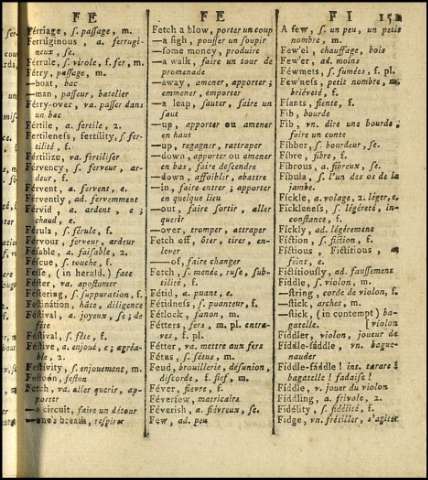 F E
Férriage, ſ. paſſage, m.
Ferruginous, a. ferrugi-
neux, ſe.
Férule, ſ. virole, f. fer, m.
Férry, paſſage, m.
—boat, bac
—man, paſſeur, batelier
Férry-over, va. paſſer dans
un bac
Fértile, a. fertile, 2.
Fértileneſs, fertility, ſ fer-
tilité, f.
Fértilize, va. fertiliſer
Férvency, ſ. ferveur, ar-
deur, f.
Férvent, a. fervent, e.
Férvently, ad. fervemment
Férvid, a. ardent, e;
chaud, e.
Férula, ſ. férule, f.
Férvour, ferveur, ardeur
Féſable, a. faiſable, 2.
Féſcue, ſ. touche, f.
Feſſe, (in herald.) faſce
Féſter, va. apoſtumer
Féſtering, ſ. ſuppuration, f.
Féſtination, hâte, diligence
Féſtival, a. joyeux, ſe; de
fête
Féſtival, ſ. fête, f.
Féſtive, a. enjoué, e; agréa-
ble, 2.
Feſtivity, ſ. enjouement, m.
Feſtóon, feſton
Fetch, va. aller querir, ap-
porter
—a circuit, faire un détour
—one's breath, reſpirer
F E
Fetch a blow, porter un coup
—a ſigh, pouſſer un ſoupir
—ſome money, produire
—a walk, faire un tour de
promenade
—away, amener, apporter;
emmener, emporter
—a leap, ſauter, faire un
ſaut
—up, apporter ou amener
en haut
—up, regagner, rattraper
—down, apporter ou amener
en bas, faire deſcendre
—down, affoiblir, abattre
—in, faire entrer; apporter
en quelque lieu
—out, faire ſortir, aller
querir
—over, tromper, attraper
Fetch off, ôter, tirer, en-
lever
—of, faire changer
Fetch, ſ. menée, ruſe, ſub-
tilité, f.
Fétid, a. puant, e.
Fétidneſs, ſ. puanteur, f.
Fétlock, fanon, m.
Fétters, fers, m. pl. entra-
ves, f. pl.
Fétter, va. mettre aux fers
Fétus, ſ. fétus, m.
Feud, brouillerie, deſunion,
diſcorde, f. fief, m.
Féver, fievre, f.
Féverfew, matricaire
Féveriſh, a. fiévreux, ſe.
Few, ad. peu
F I 151
A few, ſ. un peu, un petit
nombre, m.
Féw'el, chauffage, bois
Féw'er, ad. moins
Féwmets, ſ. fumées, f. pl.
Féw'neſs, petit nombre, m.
briéveté, f.
Fiants, fiente, f.
Fib, bourde
Fib, vn. dire une bourde;
faire un conte
Fíbber, ſ. bourdeur, ſe.
Fíbre, fibre, f.
Fíbrous, a. fibreux, ſe.
Fíbula, ſ. l'un des os de la
jambe.
Fíckle, a. volage, 2. léger, e.
Fíckleneſs, ſ. légéreté, in-
conſtance, f.
Fíckly, ad. légérement
Fíction, ſ. fiction, f.
Fictious, Fictitious, a.
feint, e.
Fictitiouſly, ad. fauſſement
Fiddle, ſ. violon, m.
—ſtring, corde de violon, f.
—ſtick, archet, m.
—ſtick, (in contempt) ba-
gatelle. [violon
Fíddler, violon, joueur de
Fíddle-fáddle, vn. bague-
nauder
Fíddle-fáddle! int. tarare!
bagatelle! fadaiſe!
Fiddle, v. jouer du violon
Fíddling, a. frivole, 2.
Fidélity, ſ. fidélité, f.
Fidge, vn. frétiller, s'agiter